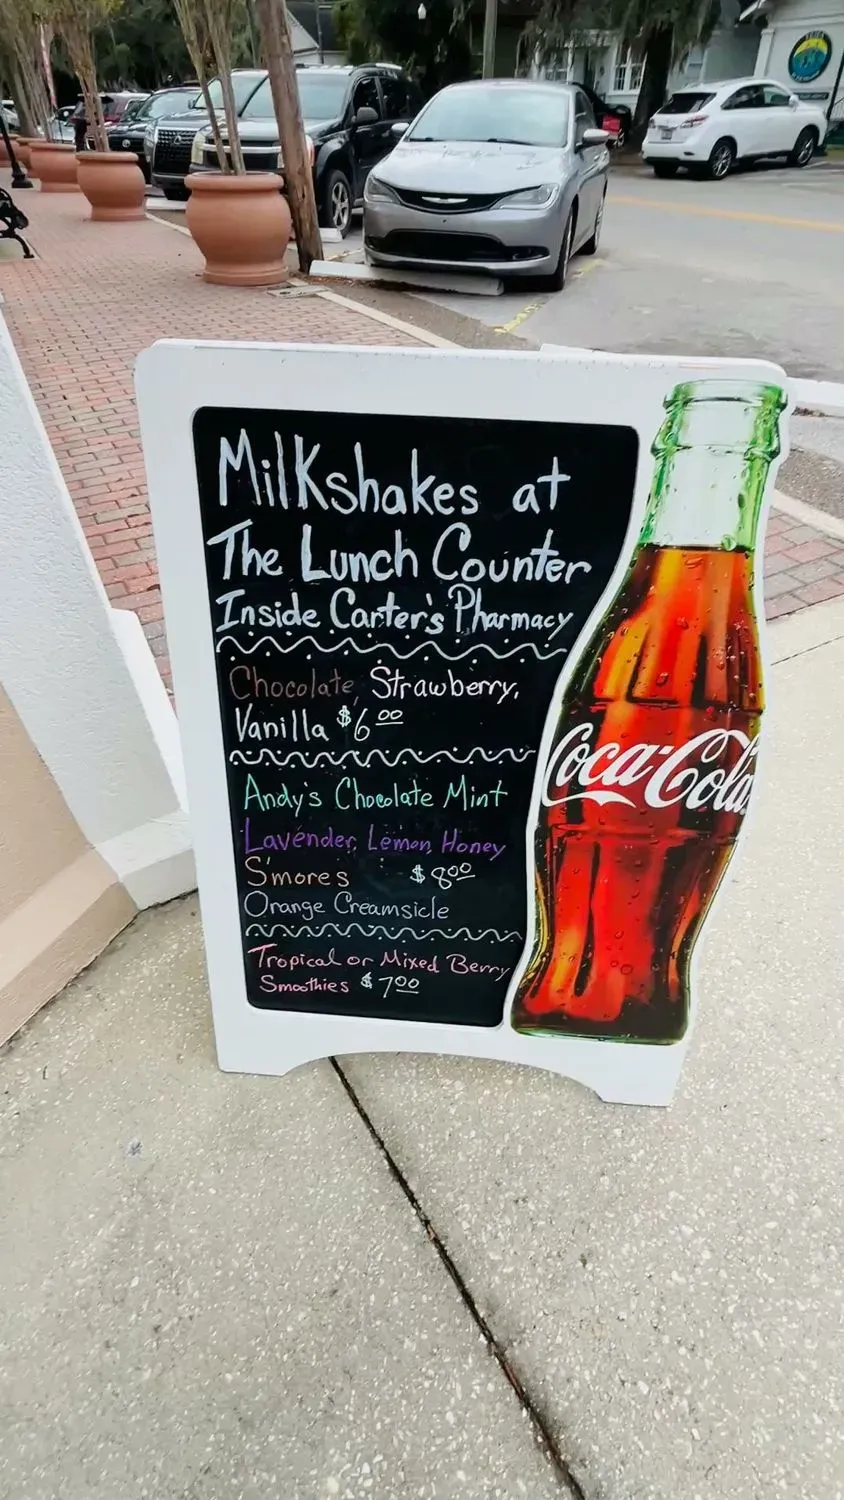 Milkshakes at
The Lunch Counter
Inside Carter's Pharmacy
Chocolate, Strawberry,
Vanilla $6.00
Andy's Chocolate Mint
Lavender, Lemon, Honey
S'mores $8.00
Orange Creamsicle
Tropical or Mixed Berry
Smoothies $7.00
Coca-Cola